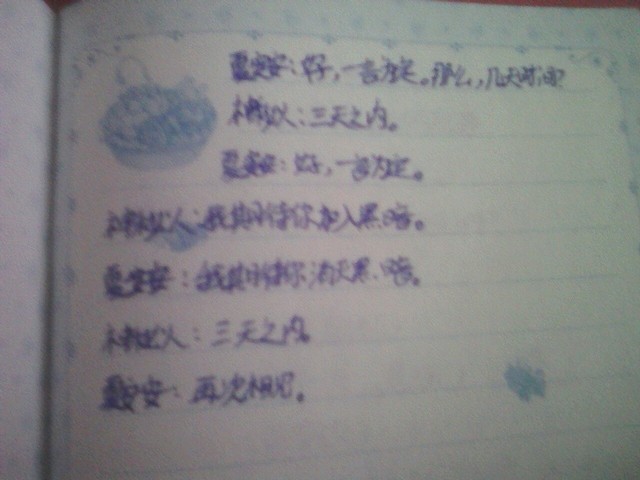 夏安安:好,一言为定。那么,几天时间?
神秘人:三天之内。
夏安安:好,一言为定。
神秘人:我期待你加入黑暗。
夏安安:我期待你消灭黑暗。
神秘人:三天之内。
夏安安:再次相见。